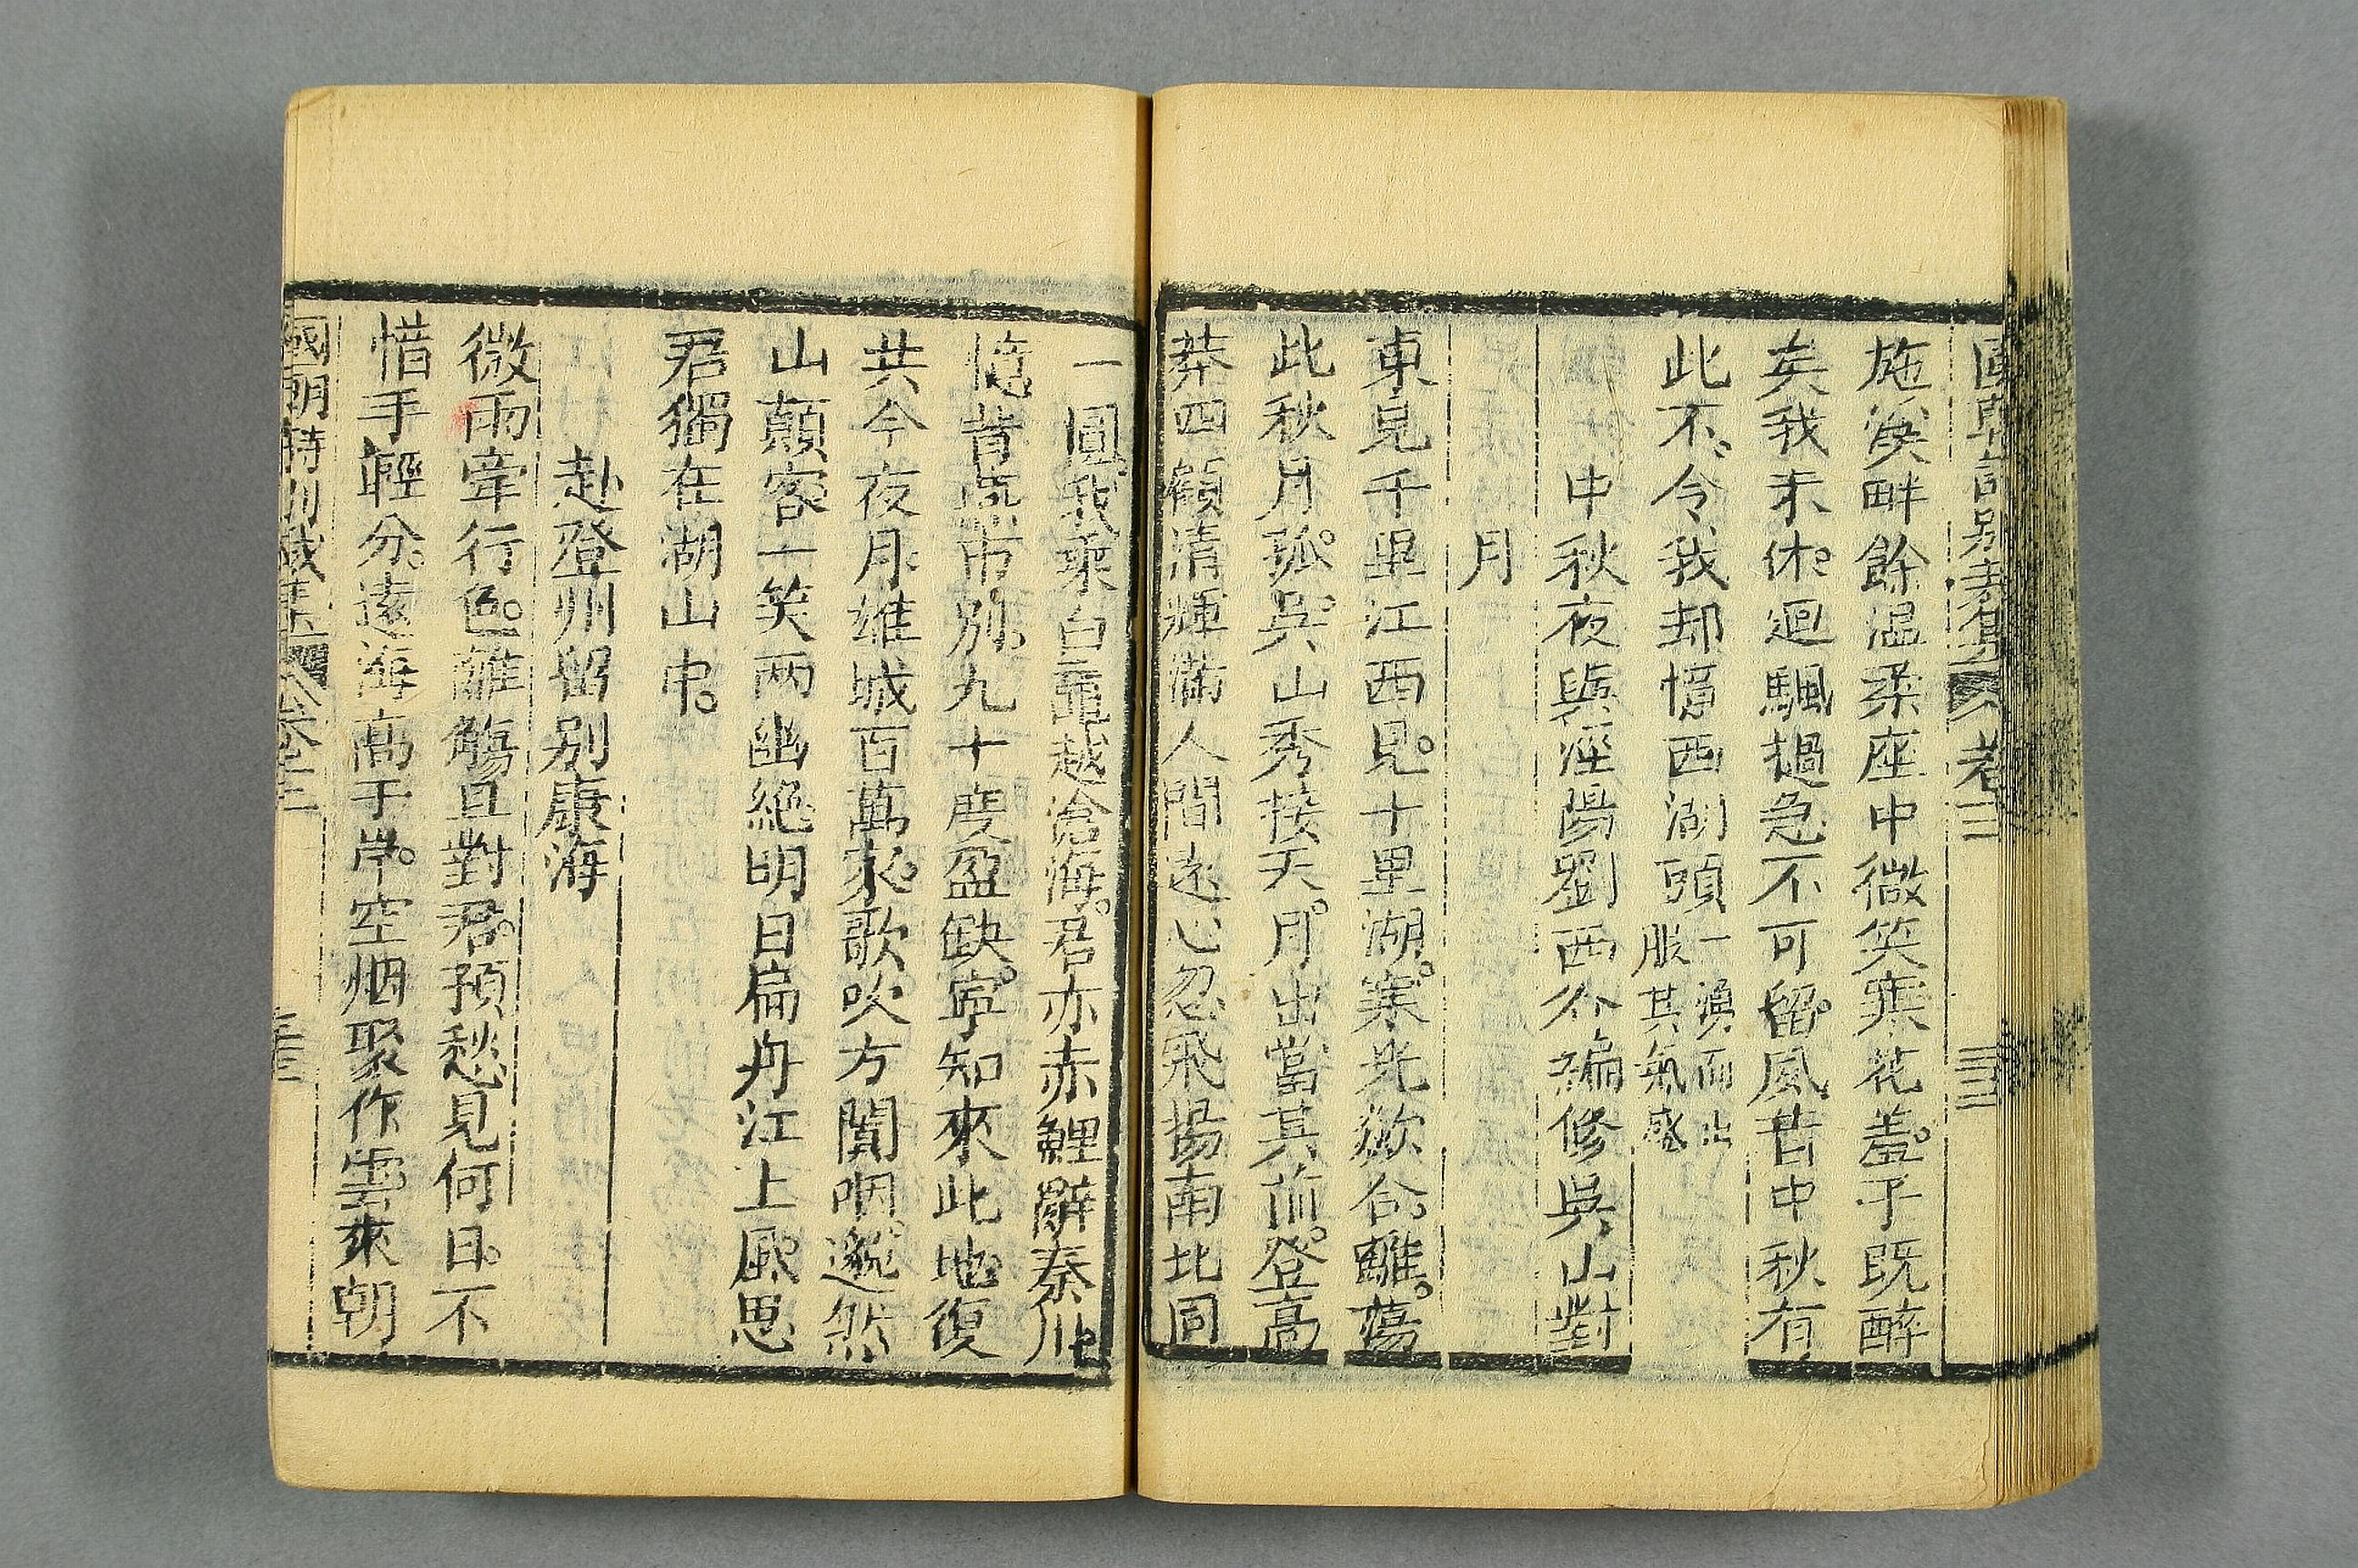 施渙畔餘温柔座中微笑寒花羞。予既醉
矣我未休。迴颿撾急不可留。風昔中秋有
此不。令我却憶西湖頭
一渙而出
服其氣盛
中秋夜與涇陽劉西谷編修吳山對
月
東見千里江西見。十里湖。寒光欲合離。蕩
此秋月孤。吳山秀接天。月出當其前。登高
莽四顧清輝滿人間遠心忽飛揚南北同
一圓。我乘白黿越滄海。君亦赤鯉辭秦川
憶昔燕市別。九十度盈缺。寧知來此地復
共今夜月。維城百萬家。歌吹方闐咽。邈然
山顛客一笑两幽絕明日扁舟江上厭思
君獨在湖山中。
赴登州留别康海
微雨牽行色。離觴且對君。預愁見何日。不
惜手輕分。遠海高于岸。空烟聚作雲來朝
國朝詩别裁集 卷三